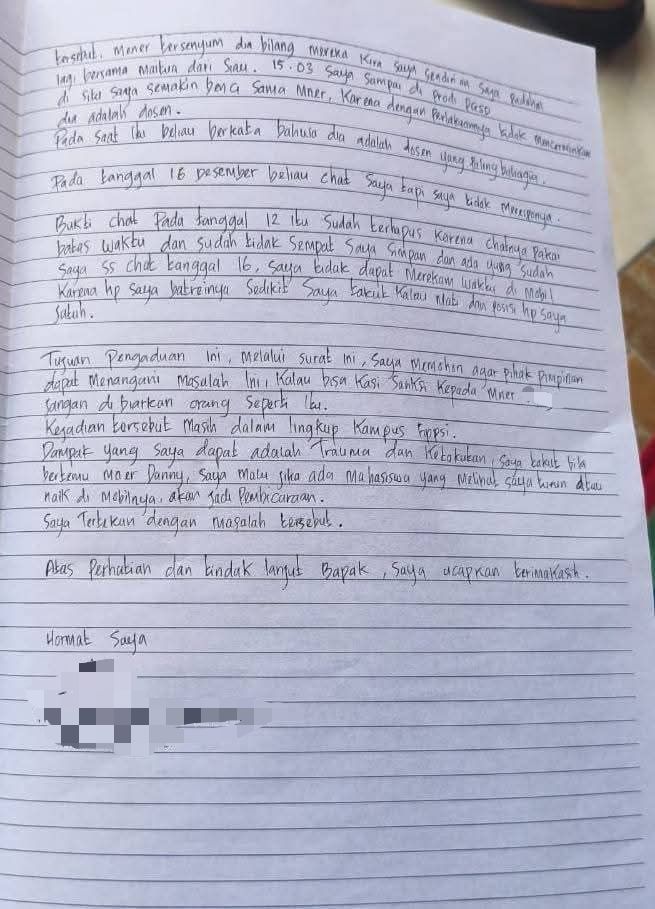 tersebut. Mener tersenyum dia bilang mereka kira saya sendirian saya padahal
lagi bersama Maitua dari Siau. 15.03 Saya Sampai di Prodi PGSD
di situ saya semakin benci sama Mner, Karena dengan Perlakuannya tidak mencerminkan
dia adalah dosen.
Pada saat itu beliau berkata bahwa dia adalah dosen yang paling bahagia.
Pada tanggal 16 Desember beliau chat Saya tapi saya tidak Meresponnya.
Bukti chat Pada tanggal 12 itu Sudah terhapus Karena chatnya pakai
batas waktu dan sudah tidak sempat saya simpan dan ada yang sudah
saya ss chat tanggal 16, saya tidak dapat Merekam waktu di Mobil
Karena hp saya batreinya Sedikit Saya takut Kalau Mati dan posisi hp saya
Jatuh.
Tujuan Pengaduan ini, Melalui surat ini, saya Memohon agar pihak Pimpinan
dapat Menangani Masalah Ini, Kalau bisa Kasi Sanksi Kepada Mner
Jangan di biarkan orang Seperti Itu.
Kejadian tersebut Masih dalam lingkup Kampus Fipsi.
Dampak yang Saya dapat adalah Trauma dan Ketakutan, Saya takut bila
bertemu Mner Danny, Saya Malu jika ada Mahasiswa yang Melihat saya turun atau
naik di Mobilnya, akan jadi Pembicaraan.
Saya Tertekan dengan Masalah tersebut.
Atas Perhatian dan tindak lanjut Bapak, Saya ucapkan terimakasih.
Hormat Saya